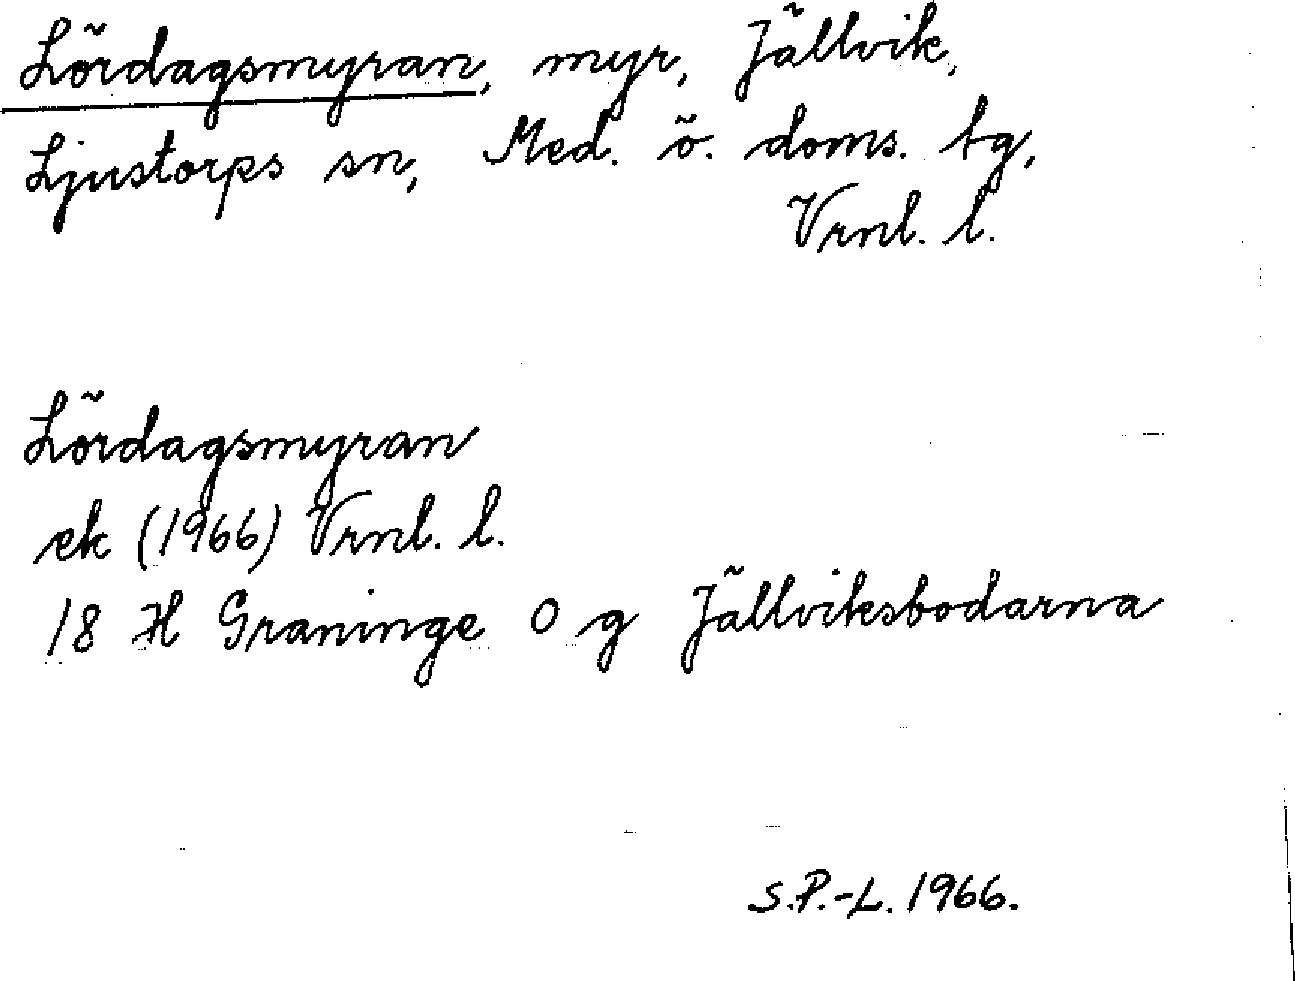 Lördagsmyran, myr, Jällvik,
Ljustorps sn, Med. ö. doms. tg,
Vrnl. l.
Lördagsmyran
ek (1966) Vrnl. l.
18 H Graninge O g Jällviksbodarna
S.P.-L. 1966.